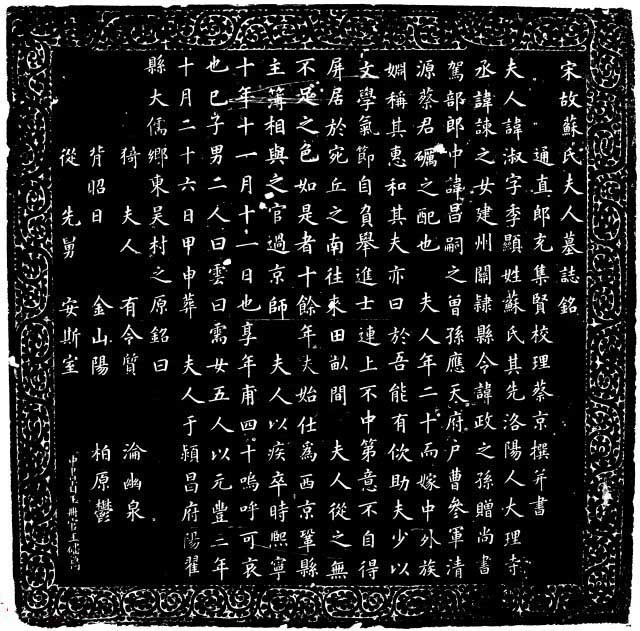 宋故蘇氏夫人墓誌銘
通直郎充集賢校理蔡京撰并書
夫人諱淑字季顯姓蘇氏其先洛陽人大理寺
丞諱諫之女建州關隸縣令諱政之孫贈尚書
駕部郎中諱昌嗣之曾孫應天府戶曹參軍清
源蔡君礪之配也 夫人年二十而嫁中外族
婣稱其惠和其夫亦曰於吾能有佽助夫少以
文學氣節自負舉進士連上不中第意不自得
屏居於宛丘之南往來田畝間 夫人從之無
不足之色如是者十餘年夫始仕為西京鞏縣
主簿相與之官過京師 夫人以疾卒時熙寧
十年十一月十一日也享年甫四十嗚呼可哀
也已子男二人曰雲曰需女五人以元豐二年
十月二十六日甲申葬 夫人于潁昌府陽翟
縣大儒鄉東吳村之原銘曰
猗 夫人 有令質 淪幽泉
背昭日 金山陽 柏原鬱
從 先舅 安斯室